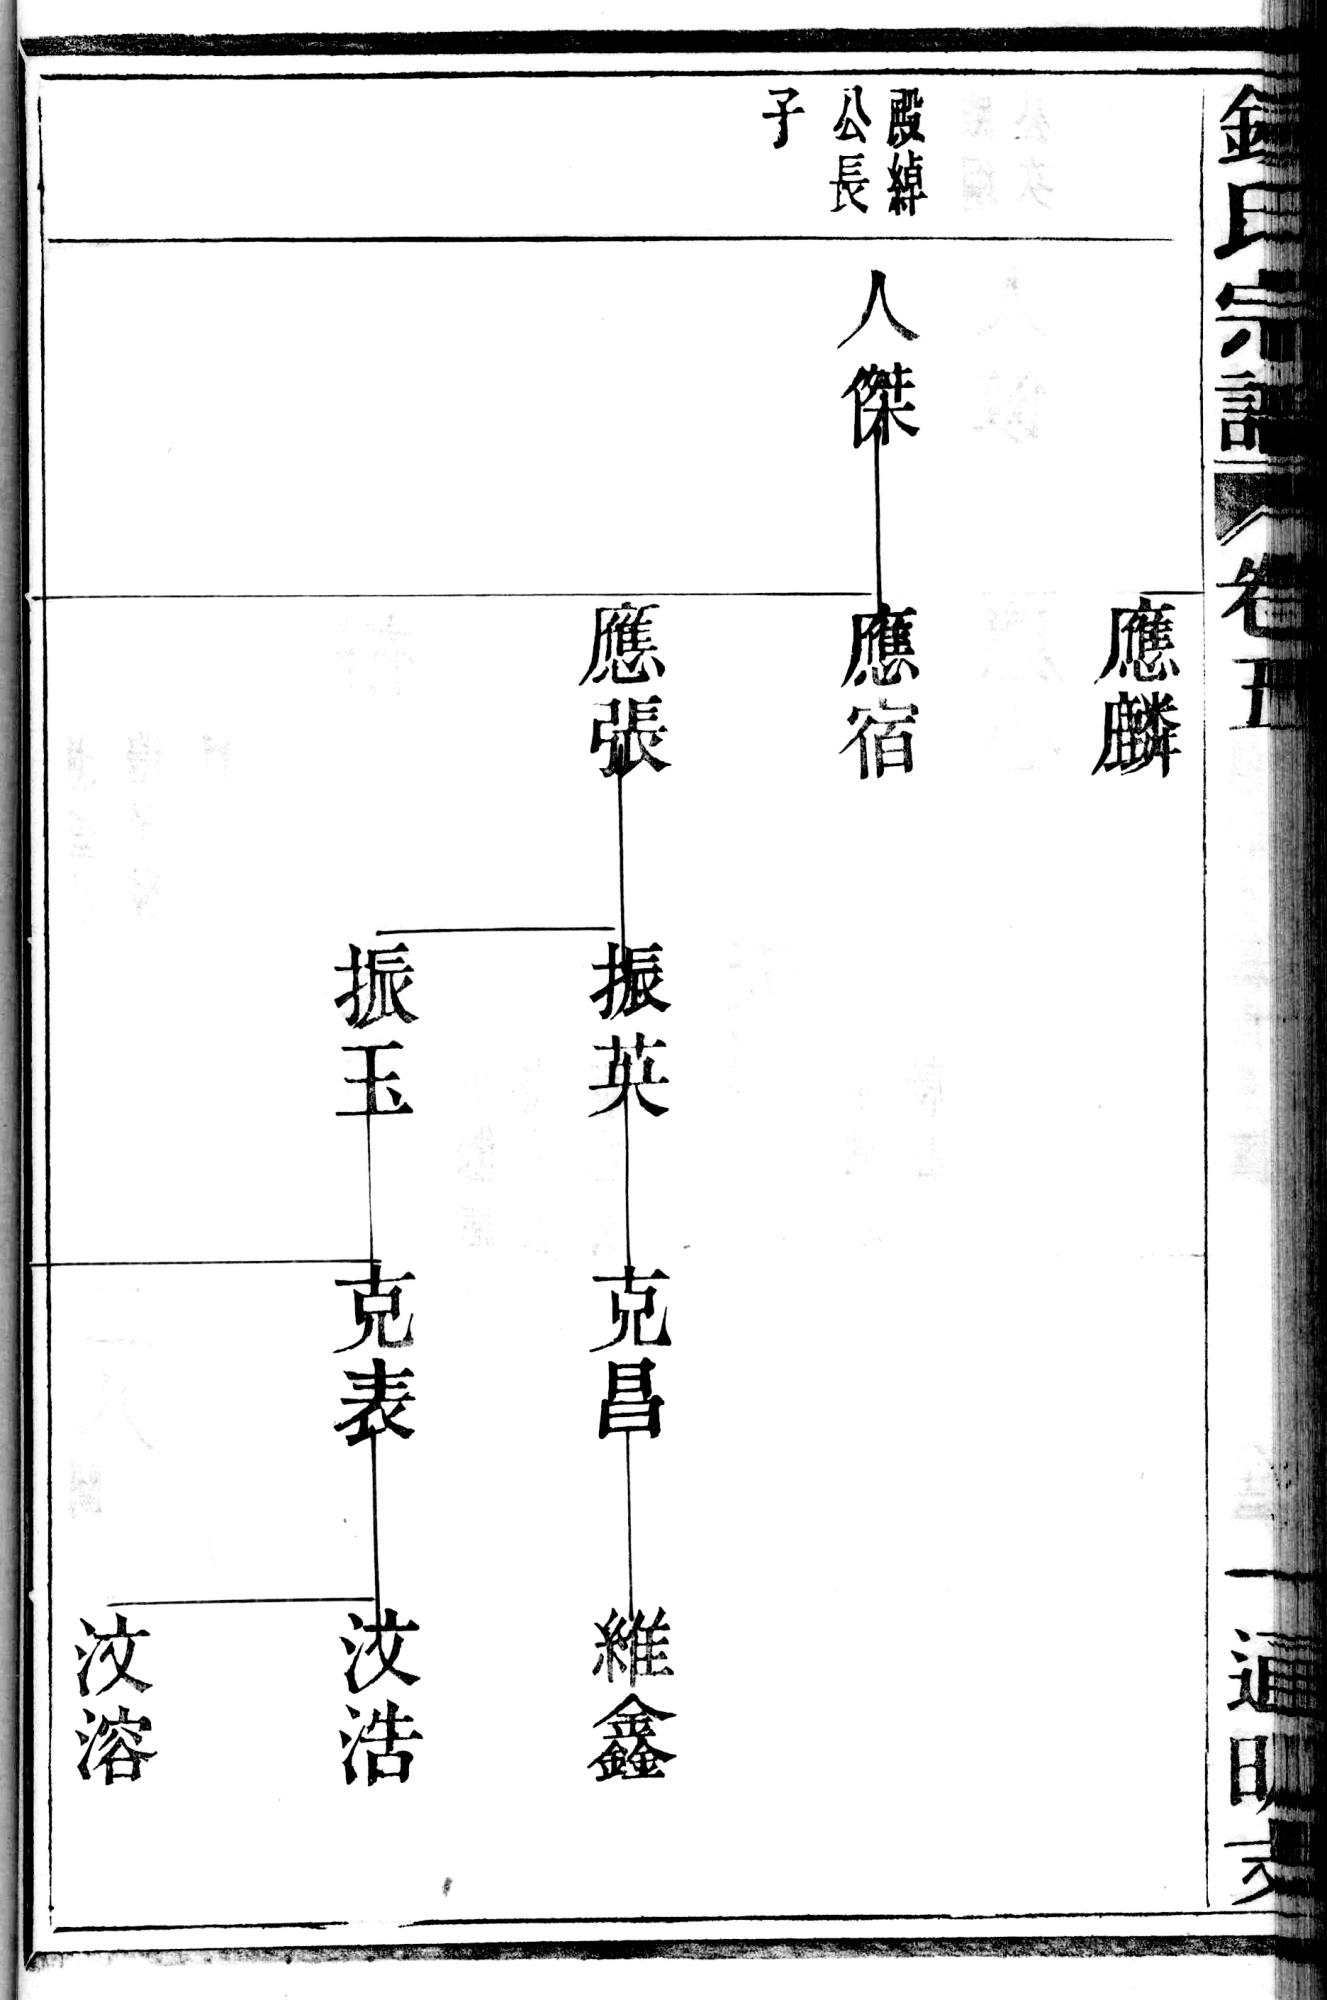 氏宗譜
卷五
一
通明支
應麟
殿綽
公長
子
人傑
應宿
應張
振英
克昌
維鑫
振玉
克表
汶浩
汶溶